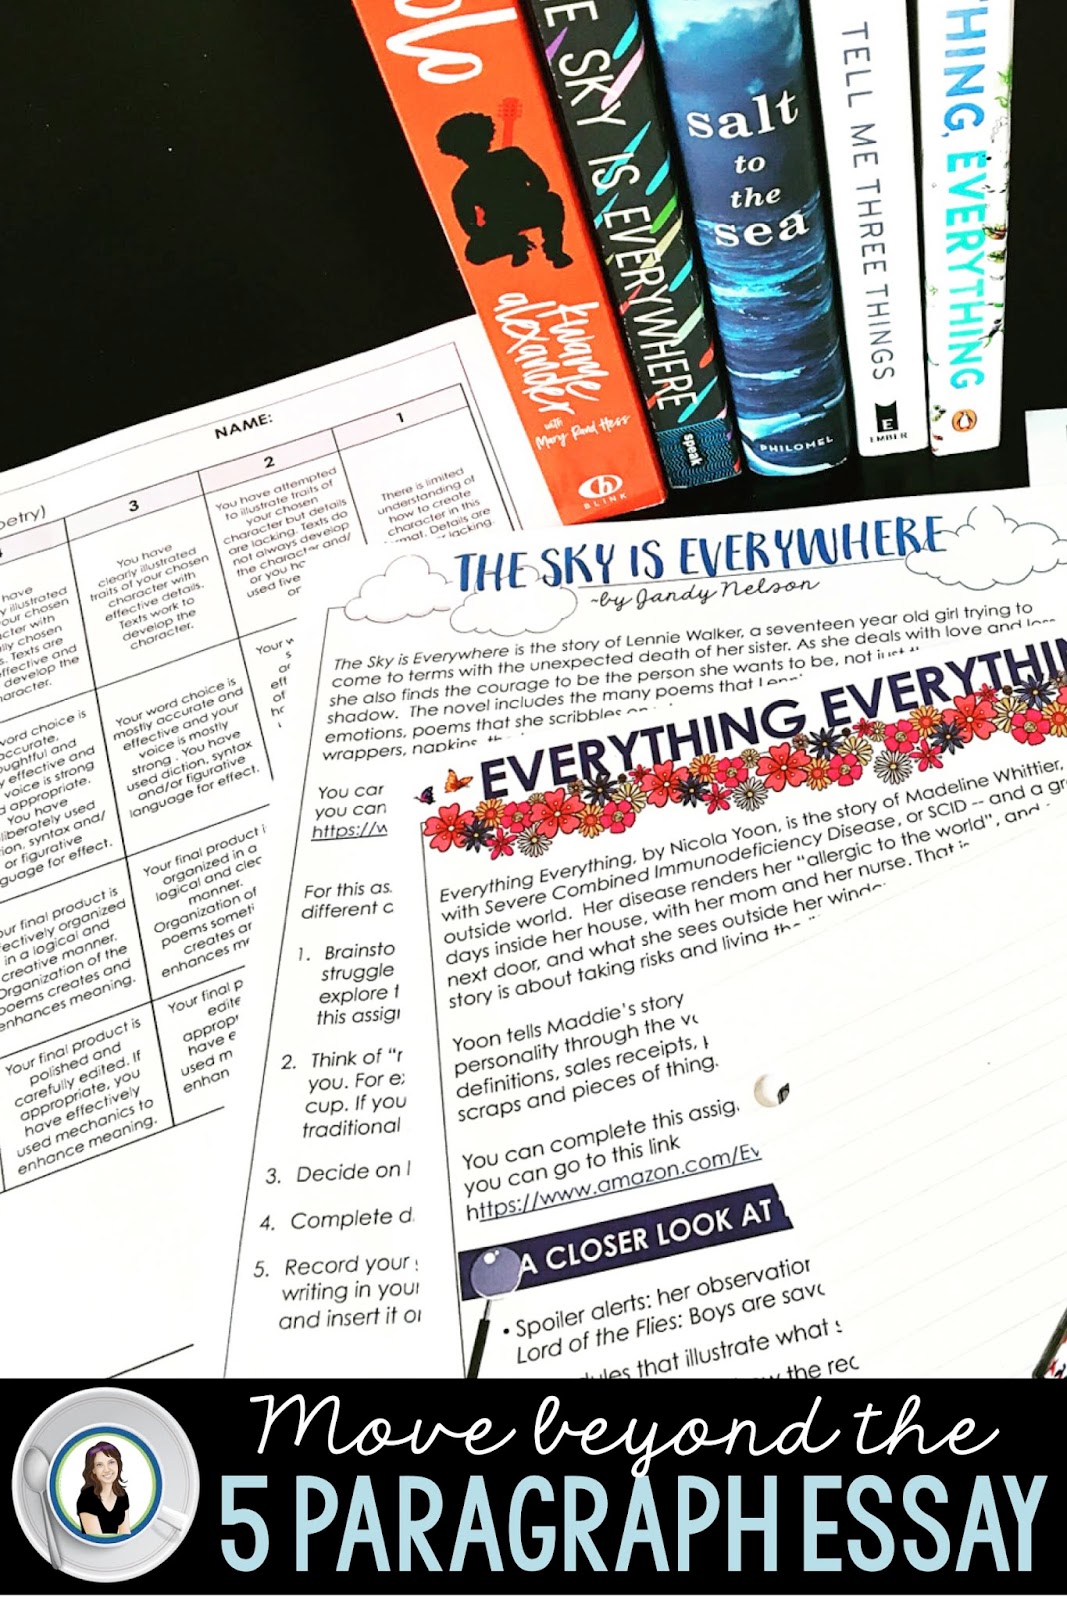 olo
kwame
alexander
with
Mary Rand Hess
BLINK
E SKY IS EVERYWHERE
speak
salt
to
the
sea
PHILOMEL
TELL ME THREE THINGS
E
EMBER
THING, EVERYTHING
NAME:
etry)
3
2
1
have
illustrated
chosen
cter with
ully chosen
s. Texts are
effective and
develop the
haracter.
You have
clearly illustrated
traits of your chosen
character with
effective details.
Texts work to
develop the
character.
You have attempted
to illustrate traits of
your chosen
character but details
are lacking. Texts do
not always develop
the character and/
or you ha
used five
or
There is limited
understanding of
how to create
character in this
rmat. Details are
lacking.
word choice is
accurate,
oughtful and
y effective and
voice is strong
d appropriate.
You have
liberately used
tion, syntax and/
or figurative
guage for effect.
Your word choice is
mostly accurate and
effective and your
voice is mostly
strong. You have
used diction, syntax
and/or figurative
language for effect.
Your w
our final product is
fectively organized
in a logical and
creative manner.
Organization of the
poems creates and
enhances meaning.
Your final product i
organized in a
logical and clea
manner.
Organization of
poems someti
creates ar
enhances me
Your final product is
polished and
carefully edited. If
appropriate, you
have effectively
used mechanics to
enhance meaning.
Your final p
edite
approp
have e
used m
enhan
THE SKY IS EVERYWHERE
~by Jandy Nelson
The Sky is Everywhere is the story of Lennie Walker, a seventeen year old girl trying to
come to terms with the unexpected death of her sister. As she deals with love and loss
she also finds the courage to be the person she wants to be, not just th
shadow. The novel includes the many poems that Lenni
emotions, poems that she scribbles on
wrappers, napkins, the
You car
you can
https://w
For this as
different c
1. Brainsto
struggle
explore t
this assigr
2. Think of "r
you. For e
cup. If you
traditional
3. Decide on
4. Complete d
5. Record your
writing in your
and insert it o
EVERYTHING, EVERYTHIN
Everything Everything, by Nicola Yoon, is the story of Madeline Whittier,
with Severe Combined Immunodeficiency Disease, or SCID -- and a gr
outside world. Her disease renders her "allergic to the world", and
days inside her house, with her mom and her nurse. That is
next door, and what she sees outside her window
story is about taking risks and living the
Yoon tells Maddie's story
personality through the v
definitions, sales receipts,
scraps and pieces of thing.
You can complete this assig
you can go to this link
https://www.amazon.com/Ev
A CLOSER LOOK AT
• Spoiler alerts: her observation
Lord of the Flies: Boys are sava
dules that illustrate what s
w the rec
Move beyond the
5 PARAGRAPH ESSAY